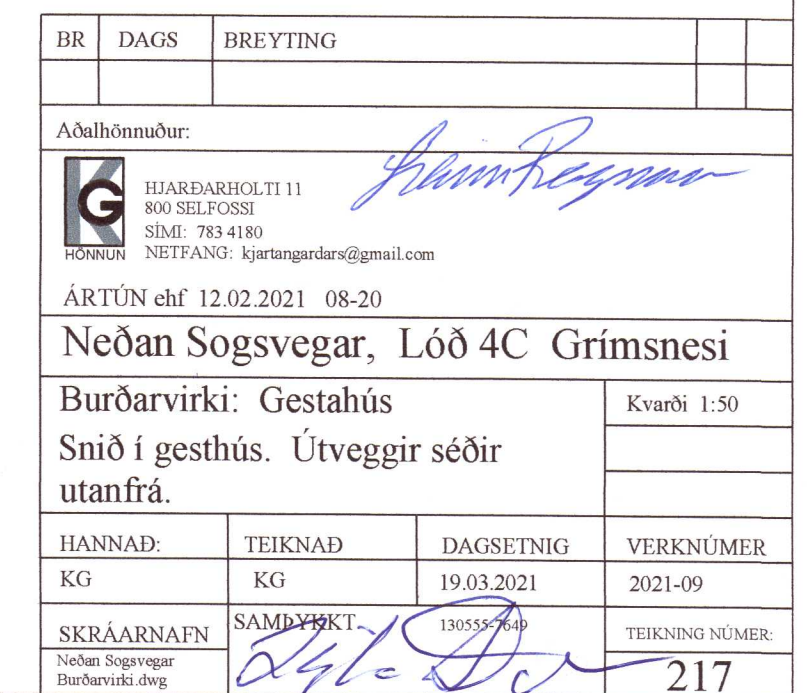 BR DAGS BREYTING
Aðalhönnuður:
KG
HÖNNUN
HJARÐARHOLTI 11
800 SELFOSSI
SÍMI: 783 4180
NETFANG: kjartangardars@gmail.com
ÁRTÚN ehf 12.02.2021 08-20
Neðan Sogsvegar, Lóð 4C Grímsnesi
Burðarvirki: Gestahús
Kvarði 1:50
Snið í gesthús. Útveggir séðir
utanfrá.
HANNAÐ: TEIKNAÐ DAGSETNIG VERKNÚMER
KG KG 19.03.2021 2021-09
SKRÁARNAFN SAMÞYKKT 130555-7649 TEIKNING NÚMER:
Neðan Sogsvegar
Burðarvirki.dwg
217